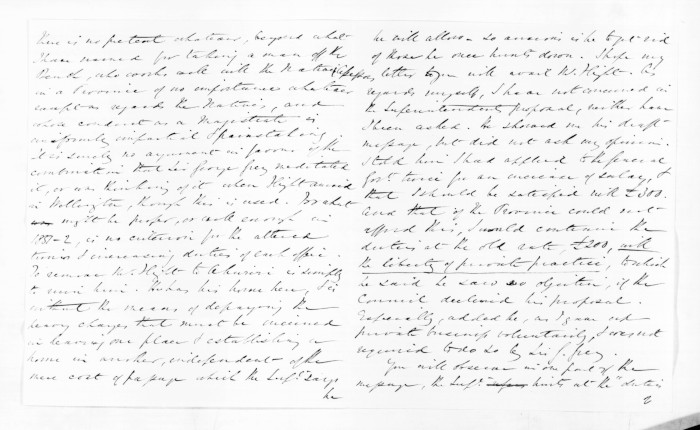 there is no pretext whatever, beyond what
I have named for taking a man off the
Bench, who works well with the Native Assessors,
in a Province of no importance whatever
except as regards the Natives, and
whose conduct as a Magistrate is
uniformly impartial & painstaking.
It is simply no argument in favour of the
combination that Sir George Grey meditated
it, or was thinking of it when Flight arrived
in Wellington, though this is used. For what
might be proper, or well enough in
1851-2, is no criterion for the altered
times & increasing duties of each office.
To remove Mr Flight to is simply
to ruin him. He has his home here, & is
without the means of defraying the
heavy charges that must be incurred
in leaving one place & establishing a
home in another, independent of the
mere cost of passage which the Supt. says
he
he will allow - so anxious is he to get rid
of those he once hunts down. I hope my
letter to you will avail Mr Flight. As
regards myself, I have not concurred in
the Superintendent's proposal, neither have
I been asked. He showed me his draft
message, but did not ask my opinion.
I told him I had applied to the General
Govt. twice for an increase of salary, &
that I should be satisfied with £300.
And that if the Province could not
afford this, I would continue the
duties at the old rate, £200, with
the liberty of private practice, to which
he said he saw no objection, if the
Council declined his proposal.
Especially, added he, as I gave up
private business voluntarily, & was not
required to do so by Sir G. Grey.
You will observe in one part of the
message, the Supt. hints at the "duties